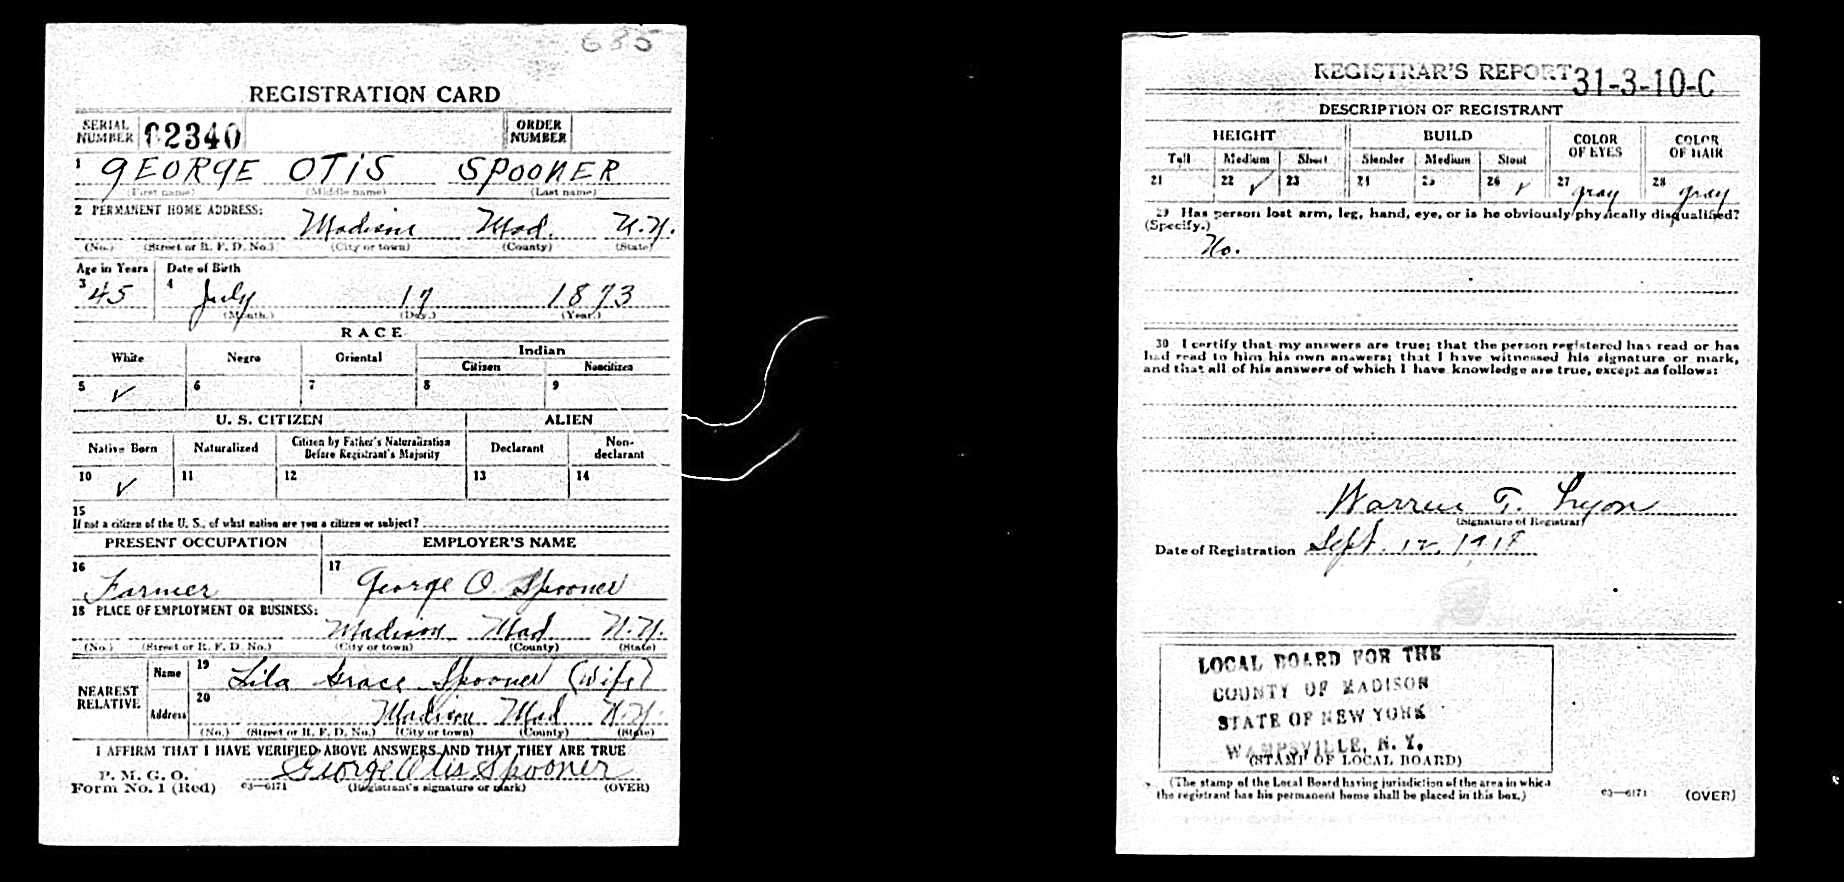 635
REGISTRATION CARD
SERIAL NUMBER 2340 ORDER NUMBER
1 GEORGE OTIS SPOONER
(First name) (Middle name) (Last name)
2 PERMANENT HOME ADDRESS:
Madison Mad. N.Y.
(No.) (Street or R. F. D. No.) (City or town) (County) (State)
Age in Years Date of Birth
3 45 4 July 17 1873
(Month.) (Day.) (Year.)
RACE
White Negro Oriental Indian
Citizen Noncitizen
5 ✓ 6 7 8 9
U. S. CITIZEN ALIEN
Native Born Naturalized Citizen by Father's Naturalization Before Registrant's Majority Declarant Non-declarant
10 ✓ 11 12 13 14
15
If not a citizen of the U. S., of what nation are you a citizen or subject?
PRESENT OCCUPATION EMPLOYER'S NAME
16 Farmer 17 George O. Spooner
18 PLACE OF EMPLOYMENT OR BUSINESS:
Madison Mad N.Y.
(No.) (Street or R. F. D. No.) (City or town) (County) (State)
NEAREST RELATIVE Name 19 Lila Grace Spooner (Wife)
Address 20 Madison Mad N.Y.
(No.) (Street or R. F. D. No.) (City or town) (County) (State)
I AFFIRM THAT I HAVE VERIFIED ABOVE ANSWERS AND THAT THEY ARE TRUE
P. M. G. O.
Form No. 1 (Red) 03—6171 George Otis Spooner
(Registrant's signature or mark) (OVER)
REGISTRAR'S REPORT 31-3-10-C
DESCRIPTION OF REGISTRANT
HEIGHT BUILD COLOR OF EYES COLOR OF HAIR
Tall Medium Short Slender Medium Stout
21 22 ✓ 23 24 25 26 ✓ 27 gray 28 gray
29 Has person lost arm, leg, hand, eye, or is he obviously physically disqualified?
(Specify.)
No.
30 I certify that my answers are true; that the person registered has read or has
had read to him his own answers; that I have witnessed his signature or mark,
and that all of his answers of which I have knowledge are true, except as follows:
Warren T. Lyon
(Signature of Registrar)
Date of Registration Sept. 12, 1918
LOCAL BOARD FOR THE
COUNTY OF MADISON
STATE OF NEW YORK
WAMPSVILLE, N. Y.
(STAMP OF LOCAL BOARD)
(The stamp of the Local Board having jurisdiction of the area in which
the registrant has his permanent home shall be placed in this box.)
03—6171 (OVER)